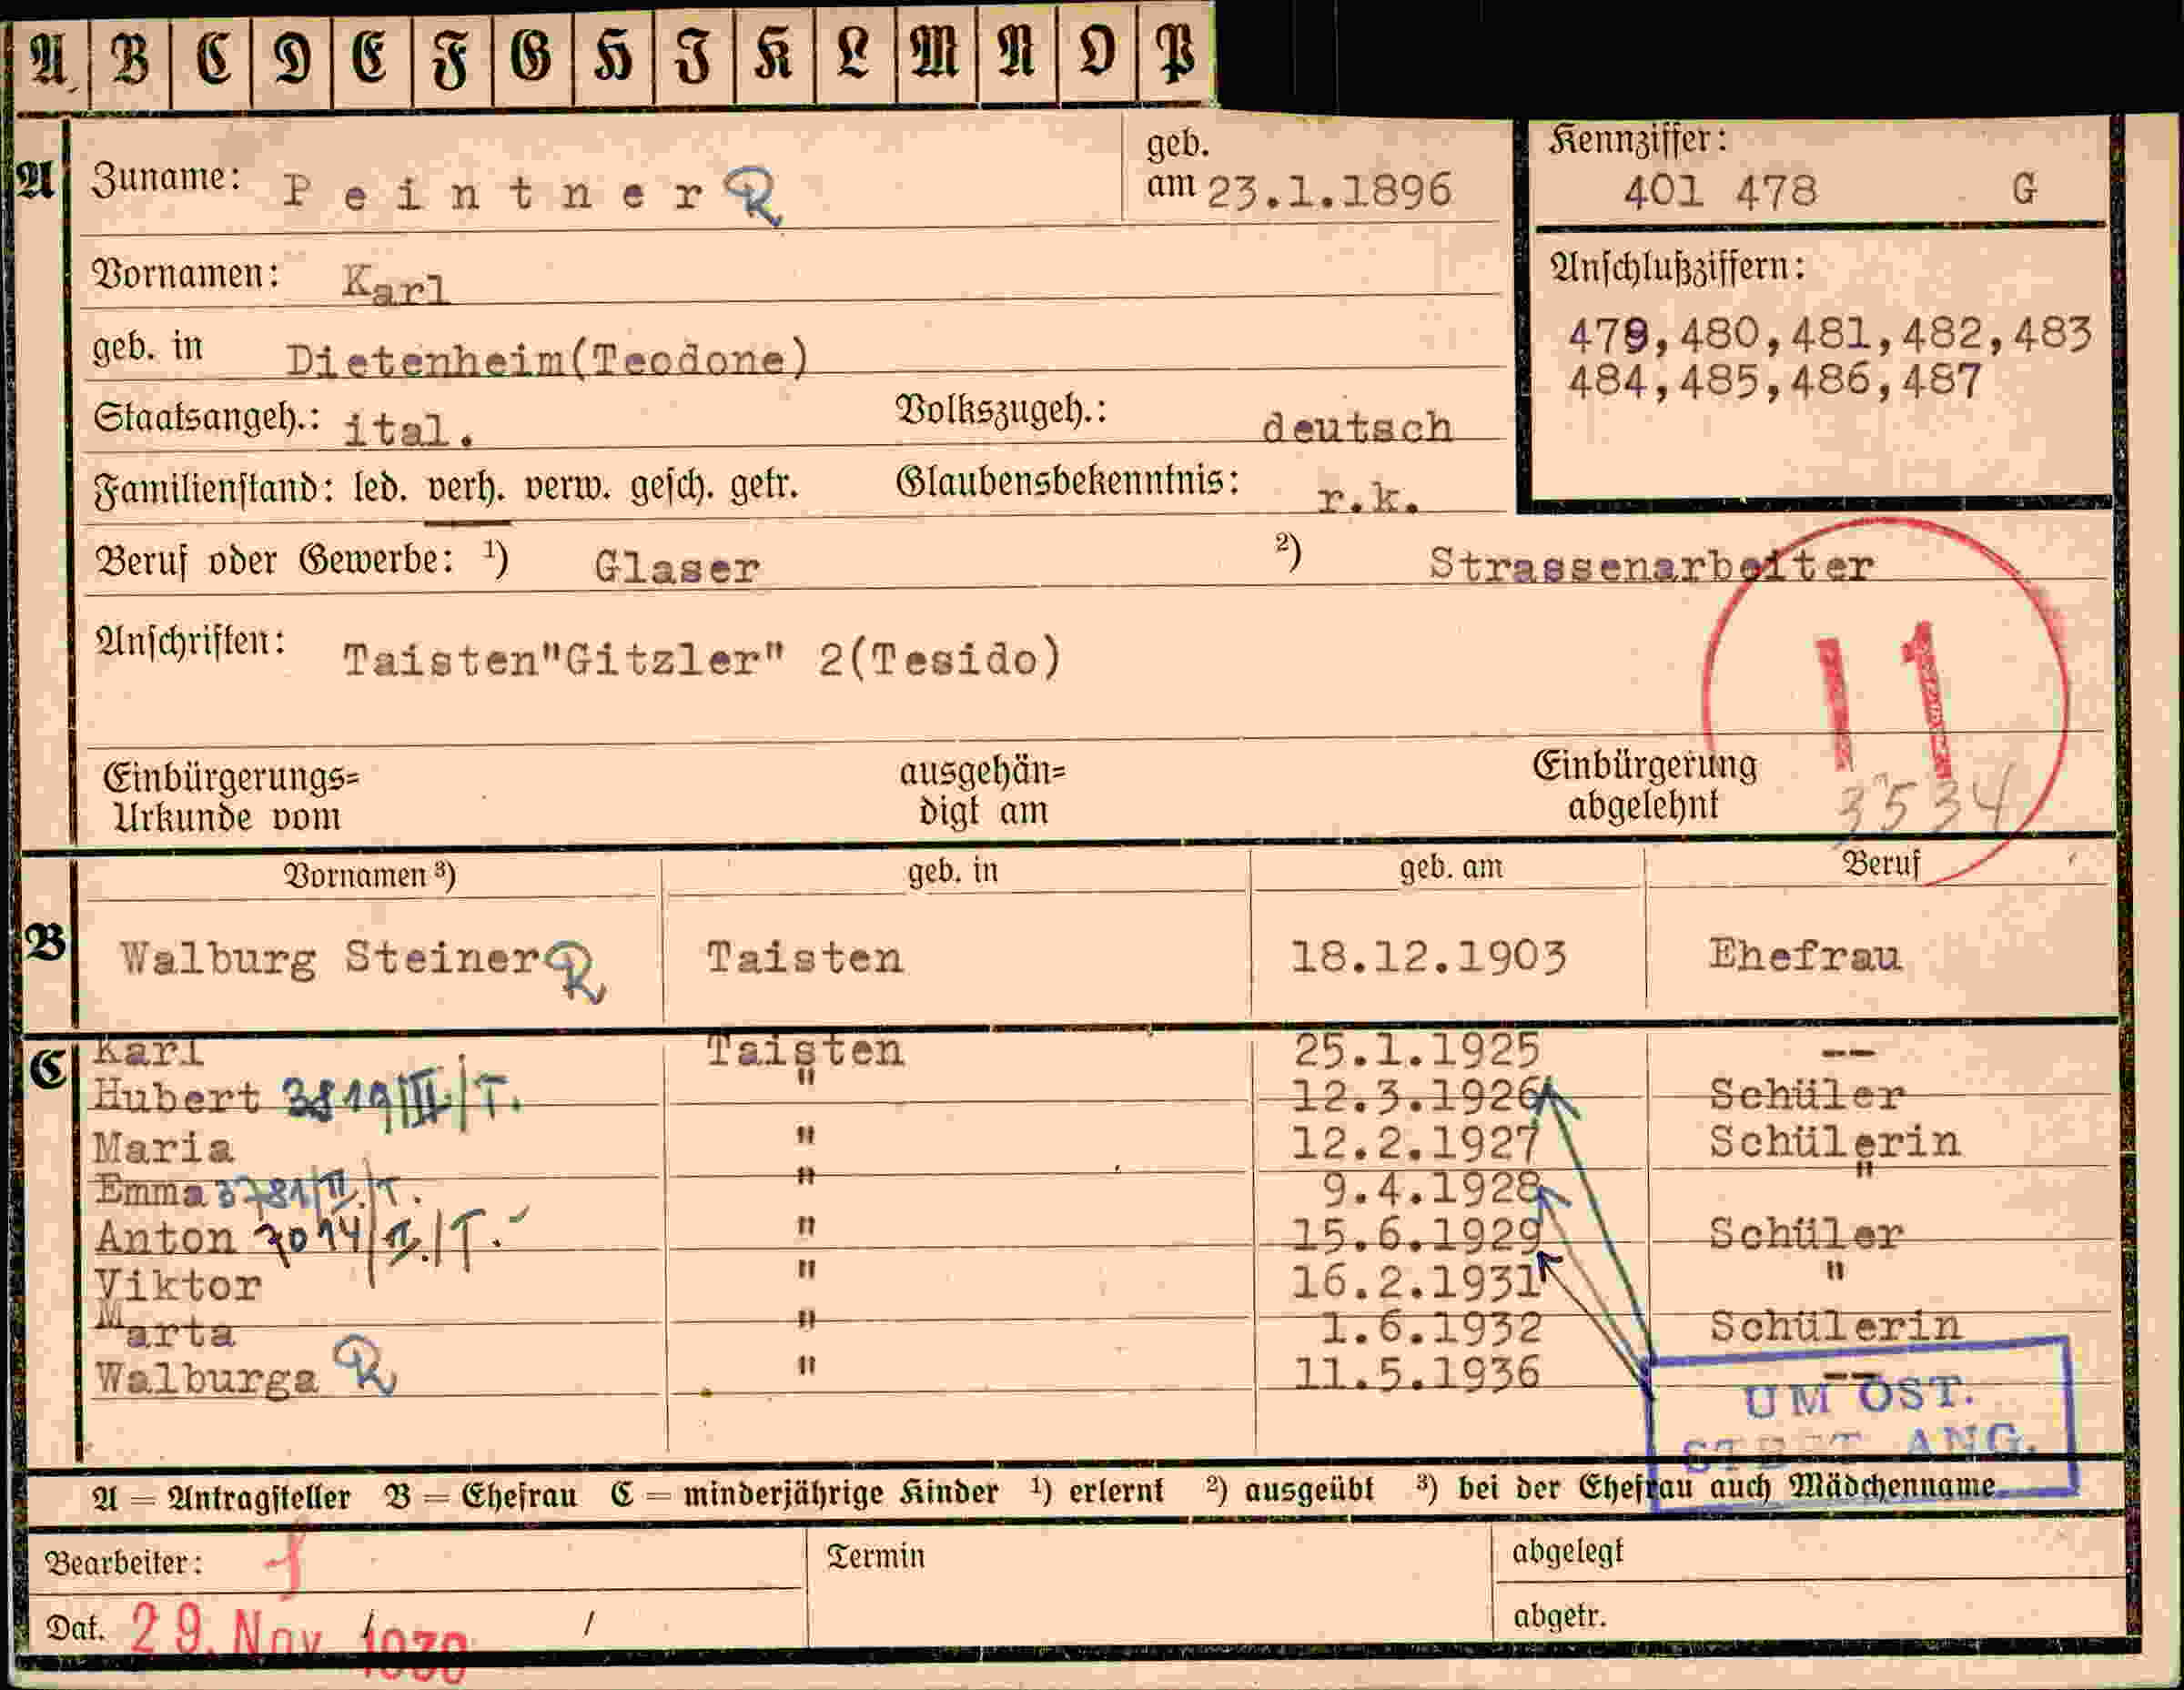 A B C D E F G H I K L M N O P
A Zuname: Peintner R geb. am 23.1.1896 Kennziffer: 401 478 G
Vornamen: Karl Anschlußziffern:
geb. in Dietenheim(Teodone) 479,480,481,482,483
484,485,486,487
Staatsangeh.: ital. Volkszugeh.: deutsch
Familienstand: led. verh. verw. gesch. getr. Glaubensbekenntnis: r.k.
Beruf oder Gewerbe: 1) Glaser 2) Strassenarbeiter
Anschriften: Taisten"Gitzler" 2(Tesido)
11
Einbürgerungs= ausgehän= Einbürgerung
Urkunde vom digt am abgelehnt 3534
Vornamen 3) geb. in geb. am Beruf
B Walburg Steiner R Taisten 18.12.1903 Ehefrau
C Karl Taisten 25.1.1925 --
Hubert 3819/III/T. " 12.3.1926 Schüler
Maria " 12.2.1927 Schülerin
Emma 3781/II/T. " 9.4.1928 "
Anton 7014/II./T. " 15.6.1929 Schüler
Viktor " 16.2.1931 "
Marta " 1.6.1932 Schülerin
Walburga R " 11.5.1936 --
UM ÖST.
ANG.
A = Antragsteller B = Ehefrau C = minderjährige Kinder 1) erlernt 2) ausgeübt 3) bei der Ehefrau auch Mädchenname
Bearbeiter: Termin abgelegt
Dat. 29. Nov. / / abgetr.